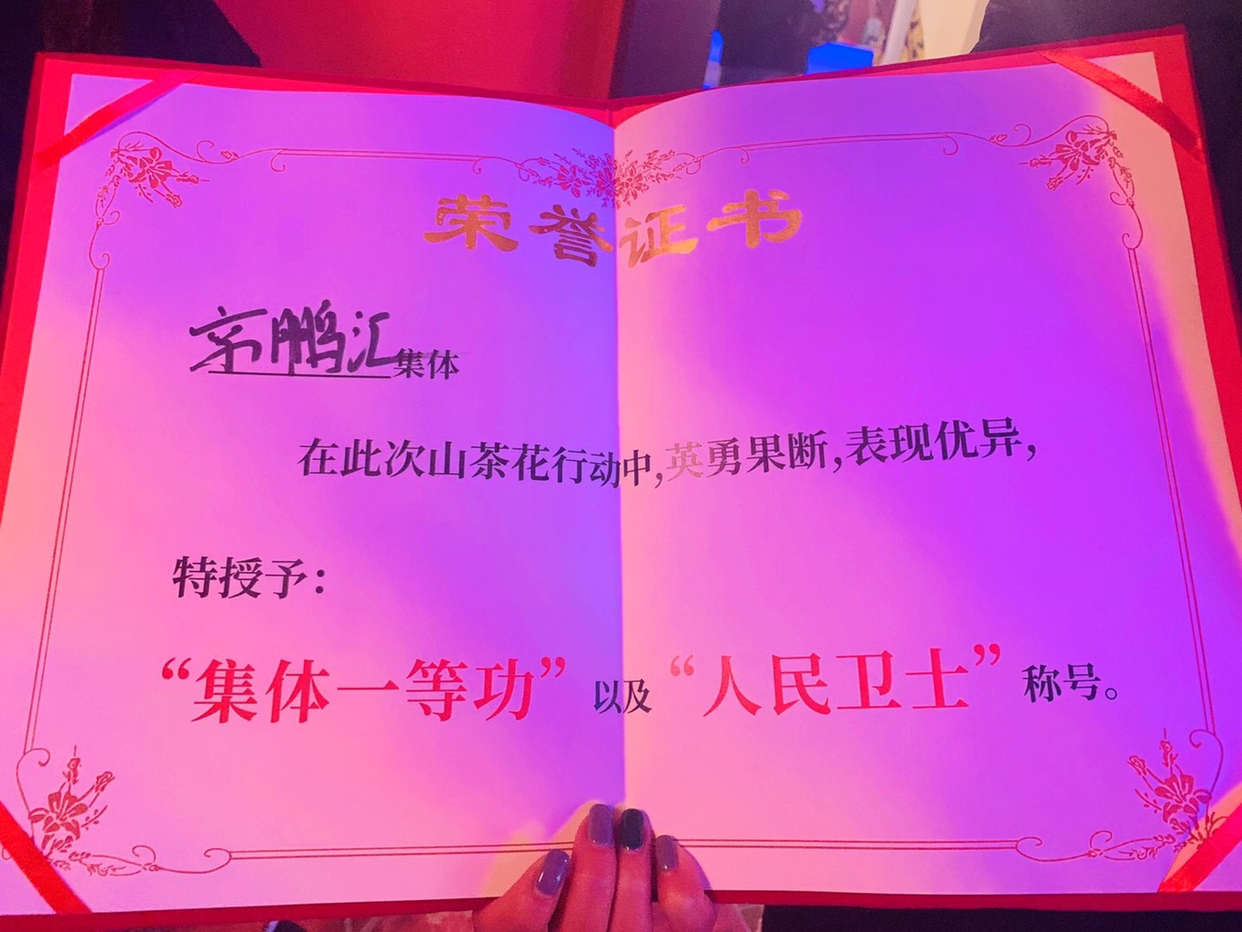 荣誉证书
京鹏汇集体
在此次山茶花行动中,英勇果断,表现优异,
特授予:
“集体一等功”以及“人民卫士”称号。